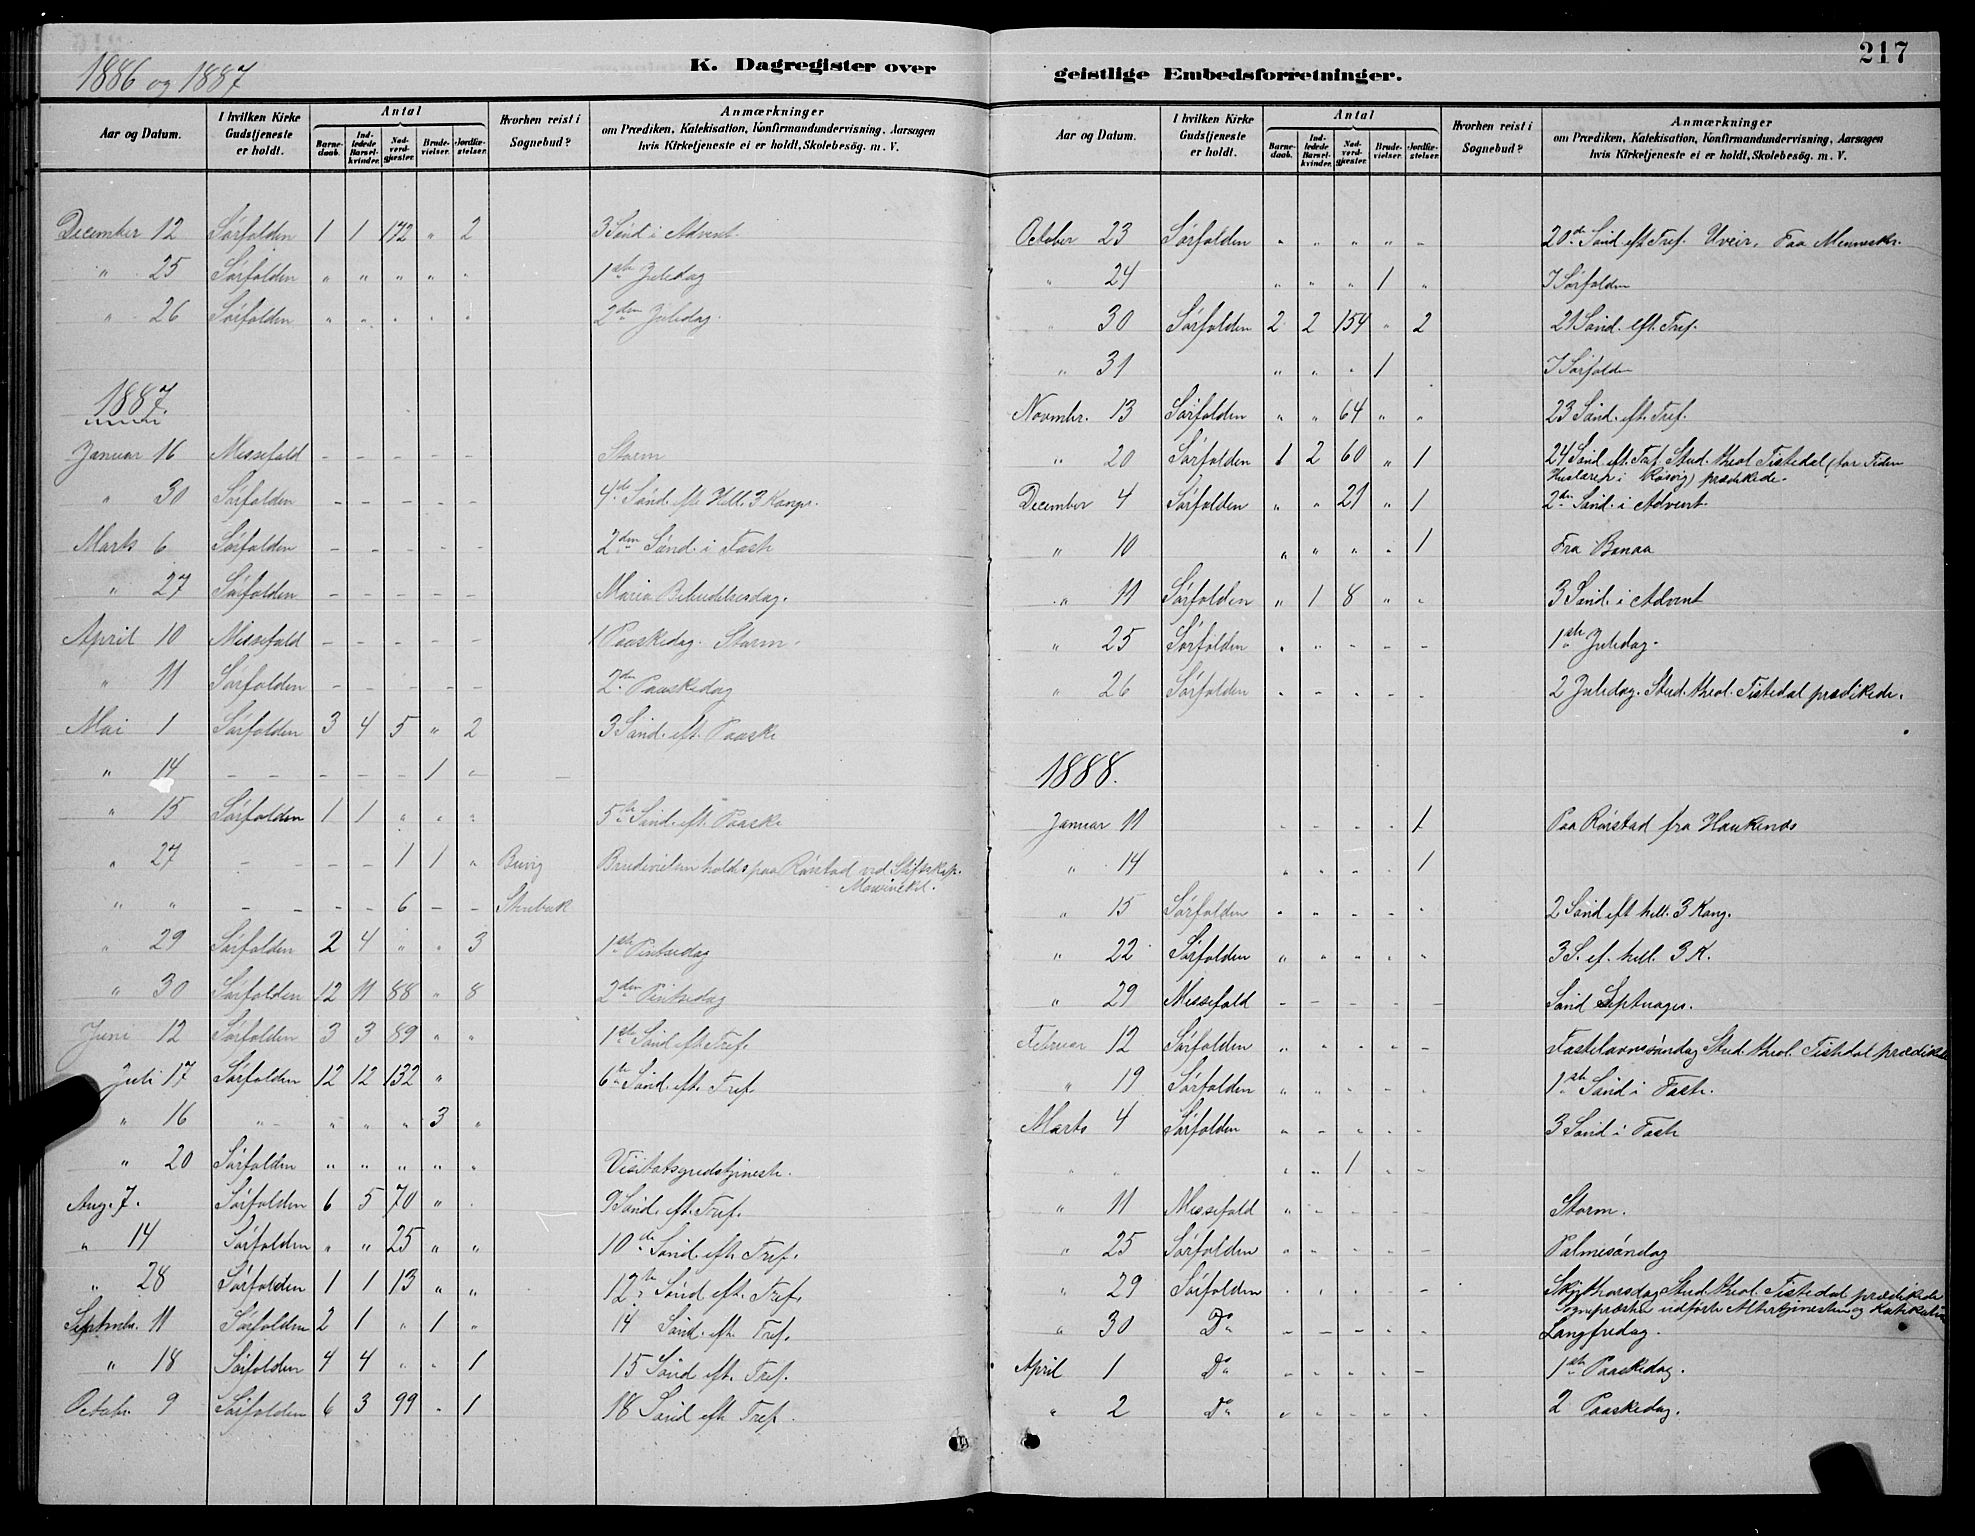 217
1886 og 1887
K. Dagregister over
Aar og Datum. I hvilken Kirke Gudstjeneste er holdt. Antal Barnedaab. Indledede Barselkvinder. Nadverdgjester. Brudevielser. Jordfæstelser. Hvorhen reist i Sognebud? Anmærkninger om Prædiken, Katekisation, Konfirmandundervisning, Aarsagen hvis Kirketjeneste ei er holdt, Skolebesög. m. V.
December 12 Sørfolden 1 1 172 " 2 3 Sønd i Advent.
" 25 Sørfolden " " " " " 1ste Juledag
" 26 Sørfolden " " " " " 2den Juledag.
1887.
Januar 16 Messefald - - - - - Storm
" 30 Sørfolden - - - - - 4de Sønd. eft. Hell. 3 Konger.
Marts 6 Sørfolden - - - - - 2den Sønd. i Faste
" 27 Sørfolden - - - - - Maria Bebudelsesdag.
April 10 Messefald - - - - - 1 Paaskedag. Storm.
" 11 Sørfolden - - - - - 2den Paaskedag
Mai 1 Sørfolden 3 4 5 " 2 3 Sønd. eft. Paaske
" 14 - - - - - 1 - -
" 15 Sørfolden 1 1 " " " 5te Sønd. eft. Paaske
" 27 - - - - 1 1 " Buvig Brudevielsen holdt paa Rørstad ved
" " - - - - 6 - -
" 29 Sørfolden 2 4 " " 3 1ste Pintsedag
" 30 Sørfolden 12 11 88 " 8 2den Pintsedag
Juni 12 Sørfolden 3 3 89 " " 1ste Sønd eft. Tref.
Juli 17 Sørfolden 12 12 132 " 6te Sønd. eft. Tref.
" 16 " - " " " 3 "
" 20 Sørfolden " " " " " Visitatsgudstjeneste.
Aug. 7. Sørfolden 6 5 70 " . 9 Sønd. eft. Tref.
" 14 Sørfolden " " 25 " " 10de Sønd. eft. Tref.
" 28 Sørfolden 1 1 13 " " 12te Sønd eft. Tref.
Septmbr. 11 Sørfolden 2 1 " 1 " 14 Sønd. eft. Tref.
" 18 Sørfolden 4 4 " " 1 15 Sønd eft. Tref.
Octobr. 9 Sørfolden 6 3 99 " 1 18 Sønd eft Tref.
geistlige Embedsforretninger.
Aar og Datum. I hvilken Kirke Gudstjeneste er holdt. Antal Barnedaab. Indledede Barselkvinder. Nadverdgjester. Brudevielser. Jordfæstelser. Hvorhen reist i Sognebud? Anmærkninger om Prædiken, Katekisation, Konfirmandundervisning, Aarsagen hvis Kirketjeneste ei er holdt, Skolebesög. m. V.
October 23 Sørfolden " " " " " 20de Sønd eft Tref. Uveir. Faa Mennesker.
" 24 " " " 1 " I Sørfolden
" 30 Sørfolden 2 2 154 " 2 21 Sønd. eft. Tref.
" 31 " " " 1 I Sørfolden
Novmbr. 13 Sørfolden " " 64 " " 23 Sønd. eft. Tref.
" 20 Sørfolden 1 2 60 " 1 24 Sønd eft. Tref. Stud. theol. Tistedal (for Tiden
Huslærer i Røsvig) prædikede.
December 4 Sørfolden " " 21 " 1 2den Sønd. i Advent.
" 10 " " " " 1 Fra Bonaa
" 11 Sørfolden " 1 8 " " 3 Sønd. i Advent
" 25 Sørfolden " " - - - 1ste Juledag.
" 26 Sørfolden - - - - - 2 Juledag. Stud. theol. Tistedal prædikede.
1888.
Januar 11 - - - - 1 Paa Rørstad fra Haukenæs
" 14 " " " " 1
" 15 Sørfolden " " " " " 2 Sønd eft hell. 3 Kong.
" 22 Sørfolden " " " " " 3 S. ef. hell. 3 K.
" 29 Messefald - - - - - Sønd Septuages.
Februar 12 Sørfolden " " " " - Fastelavnssøndag Stud. theol. Tistedal prædikede
" 19 Sørfolden " " - - - 1ste Sønd i Faste.
Marts 4 Sørfolden " - " - - 3 Sønd i Faste
" " " " 1 - -
" 11 Messefald " - - - - Storm.
" 25 Sørfolden " - - - - Palmesøndag
" 29 Sørfolden . . . . - Skjærthorsdag Stud. theol. Tistedal prædikede
Sognepræsten udførte Altertjenesten og Katekisation
" 30 Do - - - - - Langfredag.
April 1 Do - - - - - 1ste Paaskedag.
" 2 Do " - - - - 2 Paaskedag.